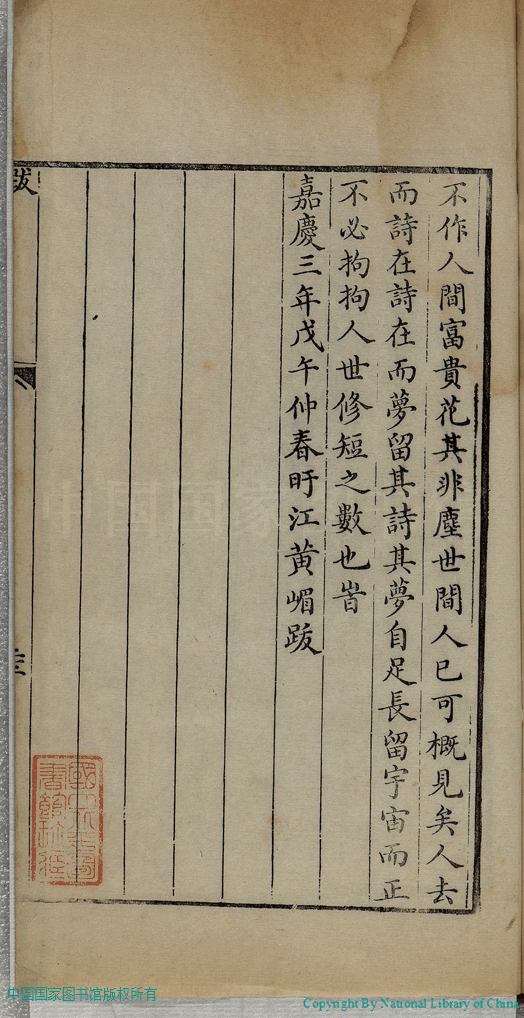 不作人間富貴花其非塵世間人已可概見矣人去
而詩在詩在而夢留其詩其夢自足長留宇宙而正
不必拘拘人世修短之數也旹
嘉慶三年戊午仲春盱江黃嵋跋
跋
國立北平圖
書館珍藏
中国国家图书馆版权所有
Copyright By National Library of China